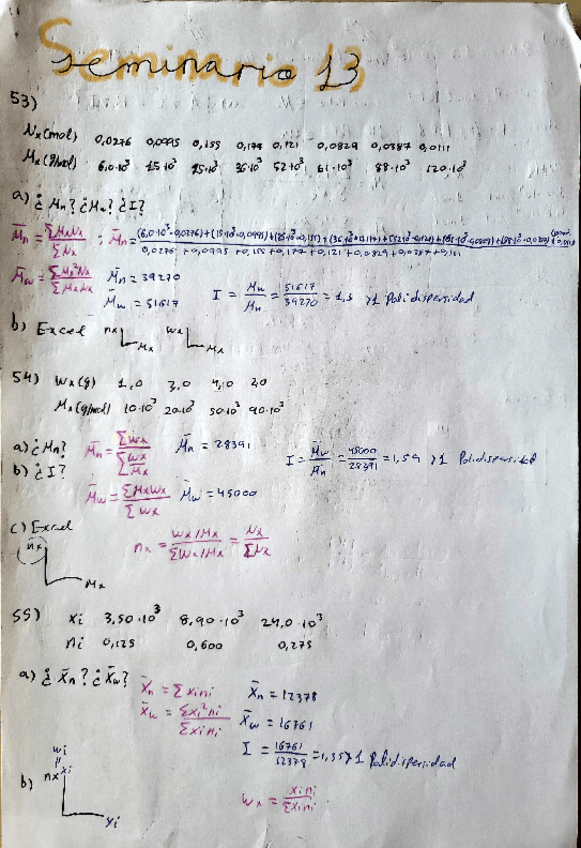 Seminario 13
53)
Nx(mol) 0,0276 0,0995 0,155 0,174 0,121 0,0829 0,0387 0,0111
Mx(g/mol) 6,0·10³ 15·10³ 25·10³ 36·10³ 52·10³ 61·10³ 88·10³ 120·10³
a) ¿Mn? ¿Mw? ¿I?
M̄n = ΣMxNx / ΣNx : M̄n =
0,0276 + 0,0995 + 0,155 + 0,174 + 0,121 + 0,0829 + 0,0387 + 0,111
M̄w = ΣMx²Nx / ΣMxNx M̄n = 39270
M̄w = 51617 I = Mw / Mn = 51617 / 39270 = 1,3 >1 Polidispersidad
b) Excel nx Mx wx Mx
54) Wx(g) 1,0 3,0 4,0 2,0
Mx(g/mol) 10·10³ 20·10³ 50·10³ 90·10³
a) ¿Mn? M̄n = ΣWx / Σ Wx/Mx M̄n = 28391 I = M̄w / M̄n = 45000 / 28391 = 1,59 >1 Polidispersidad
b) ¿I?
M̄w = ΣMxWx / ΣWx M̄w = 45000
c) Excel
nx Mx nx = Wx/Mx / ΣWx/Mx = Nx / ΣNx
55) xi 3,50·10³ 8,90·10³ 24,0·10³
ni 0,125 0,600 0,275
a) ¿X̄n? ¿X̄w? X̄n = Σxini X̄n = 12378
X̄w = Σxi²ni / Σxini X̄w = 16761
I = 16761 / 12378 = 1,35 >1 Polidispersidad
b) wi
nx xi
xi wx = xini / Σxini